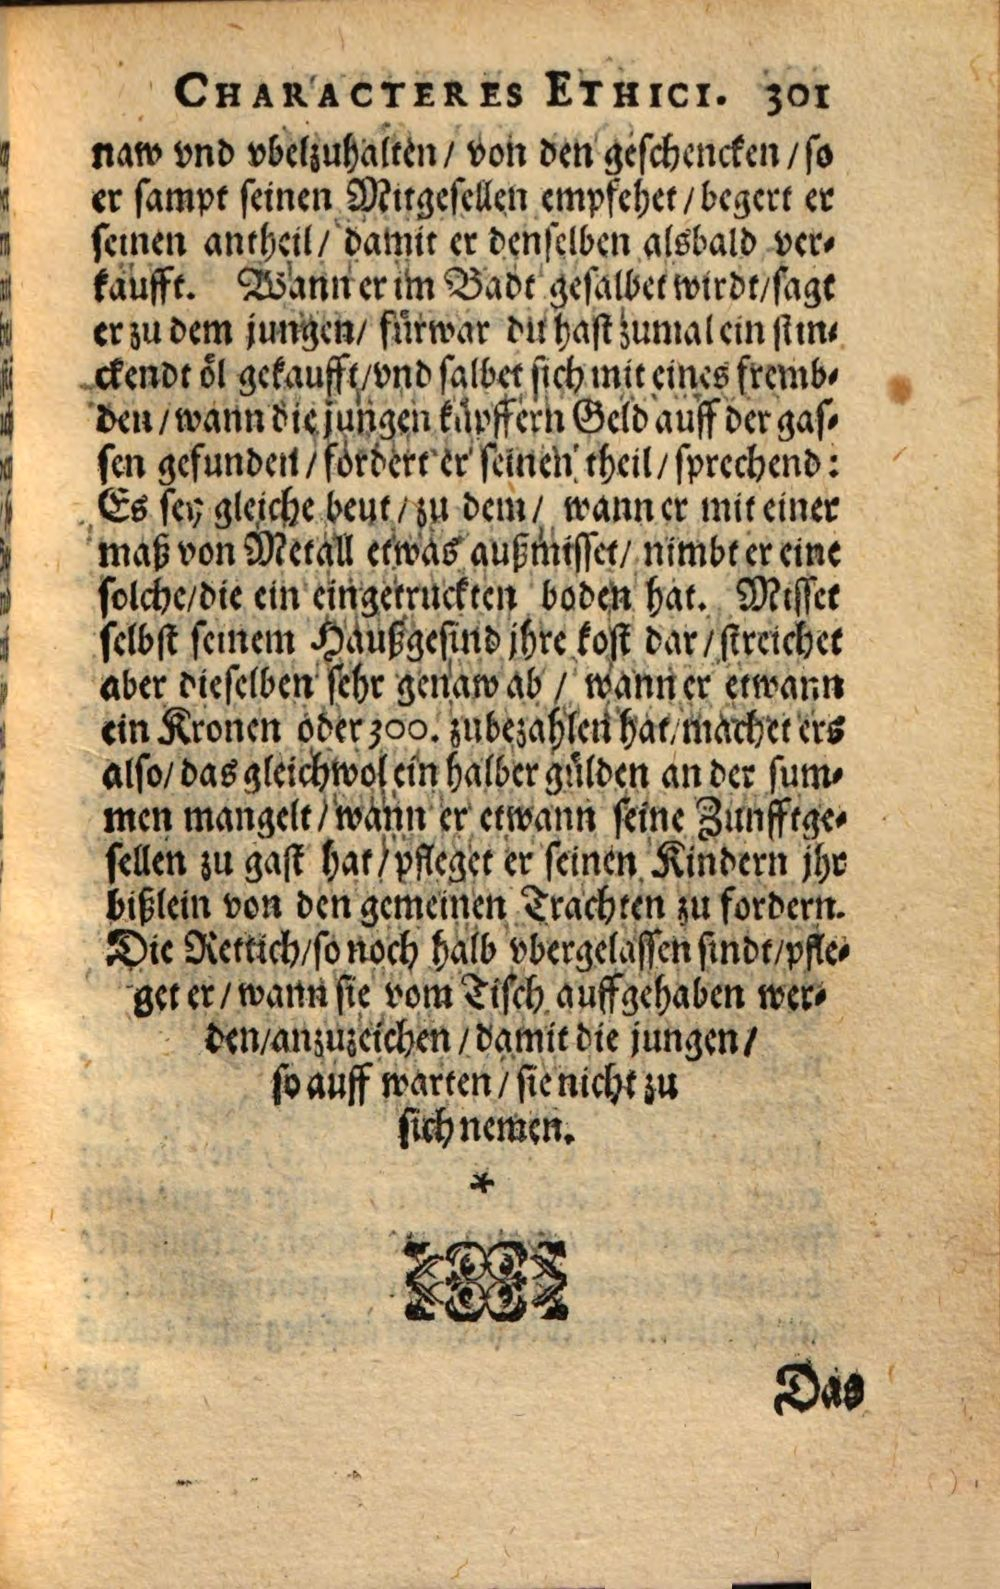 CHARACTERES ETHICI. 301
naw vnd vbelzuhalten / von den geschencken / so
er sampt seinen Mitgesellen empfehet / begert er
seinen antheil / damit er denselben alsbald ver-
kaufft. Wann er im Badt gesalbet wirdt / sagt
er zu dem jungen / fürwar du hast zumal ein stin-
ckendt öl gekaufft / vnd salbet sich mit eines fremb-
den / wann die jungen küpffern Geld auff der gas-
sen gefunden / fordert er seinen theil / sprechend:
Es sey gleiche beut / zu dem / wann er mit einer
maß von Metall etwas außmisset / nimbt er eine
solche / die ein eingetruckten boden hat. Misset
selbst seinem Haußgesind jhre kost dar / streichet
aber dieselben sehr genaw ab / wann er etwann
ein Kronen oder 300. zubezahlen hat / machet ers
also / das gleichwol ein halber gülden an der sum-
men mangelt / wann er etwann seine Zunfftge-
sellen zu gast hat / pfleget er seinen Kindern jhr
bißlein von den gemeinen Trachten zu fordern.
Die Rettich / so noch halb vbergelassen sindt / pfle-
get er / wann sie vom Tisch auffgehaben wer-
den / anzuzeichen / damit die jungen /
so auff warten / sie nicht zu
sich nemen.
*
Das